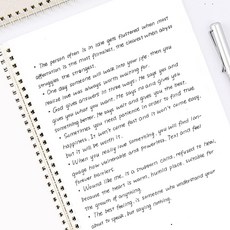 • The person often is in love gets flustered when most
attention is the most firmless, the clearest when always
struggles the strongest.
• One day someone will walk into your life, then you
realize love was always worth waiting for.
• God gives answer in three ways: He says yes and
give you what you want. He says no and gives you
something better. He says wait and gives you the best.
• Sometimes you need patience in order to find true
happiness. It won't come fast and it won't come easy,
but it will be worth it.
• When you really love something, you will find language
how vulnerable and powerless. Text and feel
forever barriers.
• Wound like me, is a stubborn child, refused to heal,
because the heart is warm, humid place, suitable for
the growth of anything.
• The best feeling is someone who understand your
about to speak, but saying nothing.